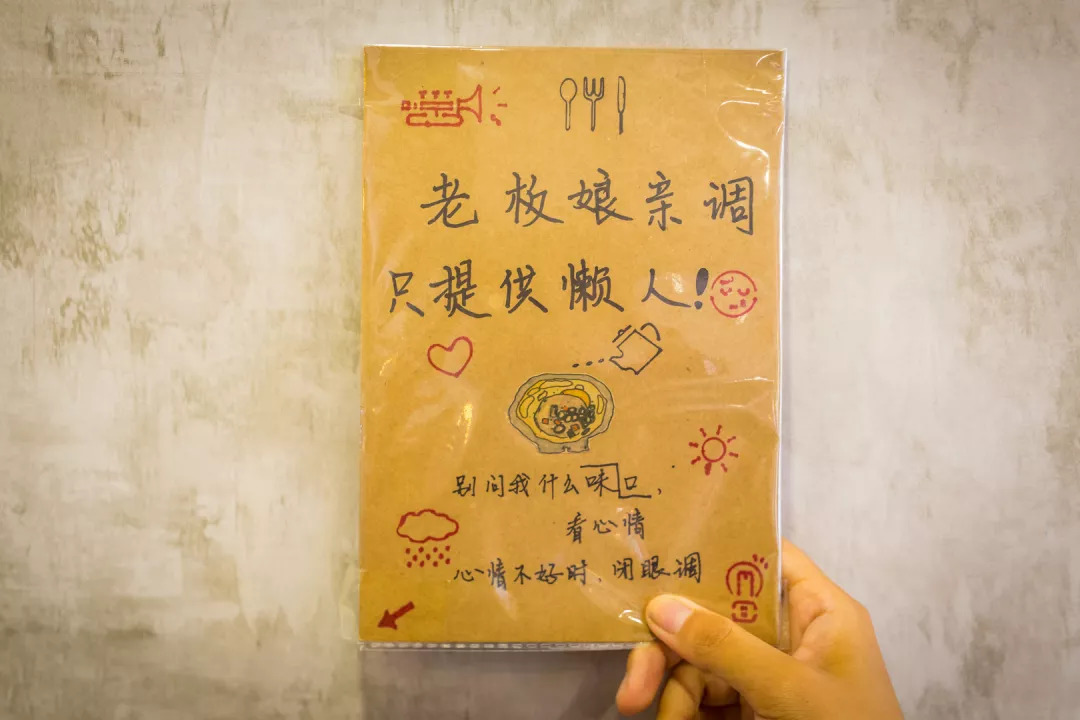 老板娘亲调
只提供懒人!
别问我什么味口,
看心情
心情不好时,闭眼调